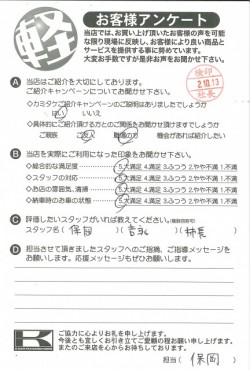 軽
お客様アンケート
当店では、お買い上げ頂いたお客様の声を可能
な限り現場に反映し、お客様により良い商品と
サービスを提供する事に努めています。
大変お手数ですが是非お声をお聞かせ下さい。
検印
2.10.13
社長
A 当店はご紹介を大切にしております。
ご紹介キャンペーンについてお聞かせ下さい。
◇カミタケご紹介キャンペーンのご説明はありましたでしょうか
はい いいえ
◇具体的にご紹介頂ける方とのご関係をお聞かせ頂けますでしょうか
ご親族 ご友人 職場の方 機会があれば紹介したい
B 当店を実際にご利用になった印象をお聞かせ下さい。
◇総合的な満足度 5.大満足 4.満足 3.ふつう 2.やや不満 1.不満
◇スタッフの対応 5.大満足 4.満足 3.ふつう 2.やや不満 1.不満
◇お店の雰囲気、清掃 5.大満足 4.満足 3.ふつう 2.やや不満 1.不満
◇納車時のお車の状態 5.大満足 4.満足 3.ふつう 2.やや不満 1.不満
C 評価したいスタッフがいれば教えてください。(複数回答可)
スタッフ名( 保岡 )( 吉永 )( 林長 )
D 担当させて頂きましたスタッフへのご指摘、ご指導メッセージを
お願いします。応援メッセージもぜひお願いします。
K
ご協力に心よりお礼を申し上げます。
今後とも宜しくお引き立てご愛顧の程お願い申し上げます。
またのご来店を心からお待ちしております。
担当( 保岡 )